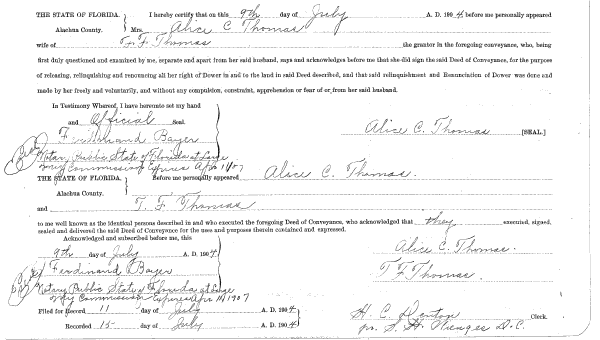 THE STATE OF FLORIDA. I hereby certify that on this 9th day of July A. D. 1904 before me personally appeared
Alachua County. Mrs. Alice C Thomas
wife of T. F Thomas the grantor in the foregoing conveyance, who, being
first duly questioned and examined by me, separate and apart from her said husband, says and acknowledges before me that she did sign the said Deed of Conveyance, for the purpose
of releasing, relinquishing and renouncing all her right of Dower in and to the land in said Deed described, and that said relinquishment and Renunciation of Dower was done and
made by her freely and voluntarily, and without any compulsion, constraint, apprehension or fear of or from her said husband.
In Testimony Whereof, I have hereunto set my hand
and Official Seal.
Ferdinand Bayer Alice C. Thomas [SEAL.]
Notary Public State of Florida at Large
My Commission Expires Apr 11 1907
THE STATE OF FLORIDA. Before me personally appeared Alice C. Thomas.
Alachua County.
and T. F Thomas
to me well known as the identical persons described in and who executed the foregoing Deed of Conveyance, who acknowledged that they executed, signed,
sealed and delivered the said Deed of Conveyance for the uses and purposes therein contained and expressed.
Acknowledged and subscribed before me, this
9th day of July A. D. 1904 Alice C. Thomas.
Ferdinand Bayer T F Thomas.
Notary Public State of Florida at Large
My Commission Expires Apr 11 1907
Filed for Record 11 day of July A. D. 1904
H. C. Denton Clerk.
Recorded 15 day of July A. D. 1904 D. C.